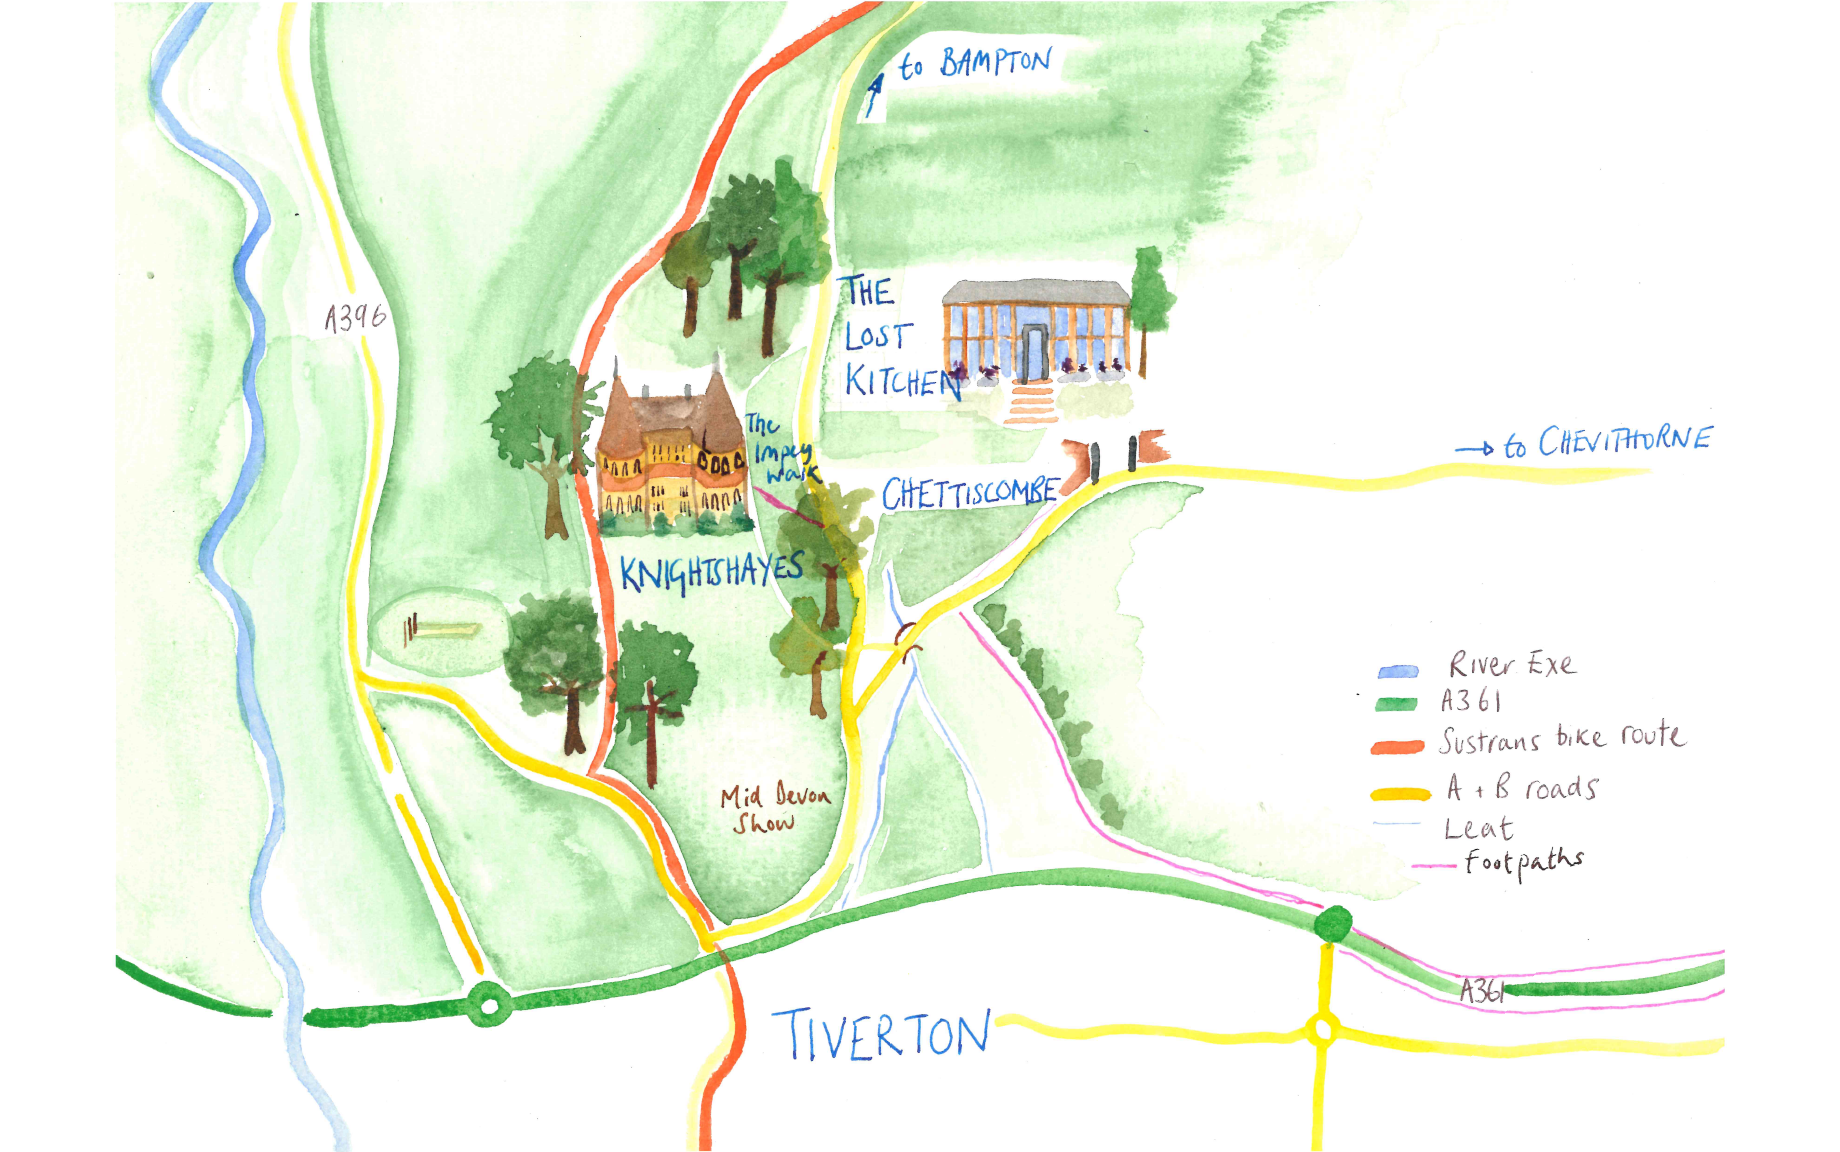 → to BAMPTON
A396
THE
LOST
KITCHEN
The
Impey
Walk
→ to CHEVITHORNE
CHETTISCOMBE
KNIGHTSHAYES
Mid Devon
Show
River Exe
A361
Sustrans bike route
A + B roads
Leat
Footpaths
A361
TIVERTON